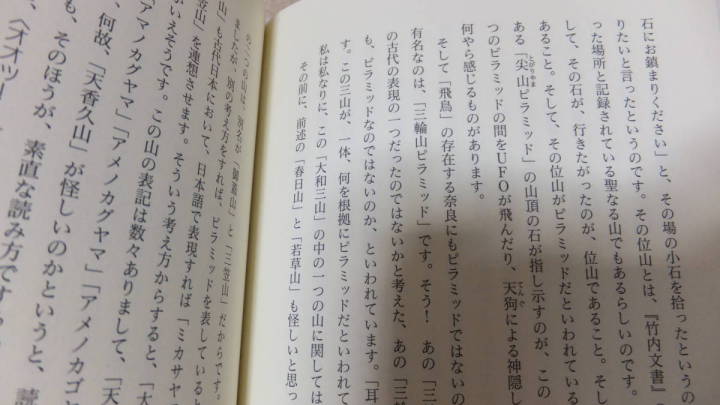 石にお鎮まりください」と、その場の小石を拾ったというの
りたいと言ったというのです。その位山とは、『竹内文書』の
った場所と記録されている聖なる山でもあるらしいのです。
して、その石が、行きたがったのが、位山であること。そし
あること。そして、その位山がピラミッドだといわれている
ある「尖山ピラミッド」の山頂の石が指し示すのが、この
とがりやま
つのピラミッドの間をUFOが飛んだり、天狗による神隠し
てんぐ
何やら感じるものがあります。
そして「飛鳥」の存在する奈良にもピラミッドではないの
有名なのは、「三輪山ピラミッド」です。そう! あの「三
の古代の表現の一つだったのではないかと考えた、あの「三
も、ピラミッドなのではないのか、といわれています。「耳
す。この三山が、一体、何を根拠にピラミッドだといわれて
私は私なりに、この「大和三山」の中の一つの山に関しては
その前に、前述の「春日山」と「若草山」も怪しいと思っ
つの山は、別名が「御蓋山」と「三笠山」だからです。
ましたが、別の考え方をすれば、ピラミッドを表していると
山」も古代日本において、日本語で表現すれば「ミカサヤ
笠山」を連想させます。そういう考え方からすると、「大
いえそうです。この山の表記は数々ありまして、「天
アマノカグヤマ」「アメノカグヤマ」「アメノカゴ
何故、「天香久山」が怪しいのかというと、読
も、そのほうが、素直な読み方です。
、〈オオッー